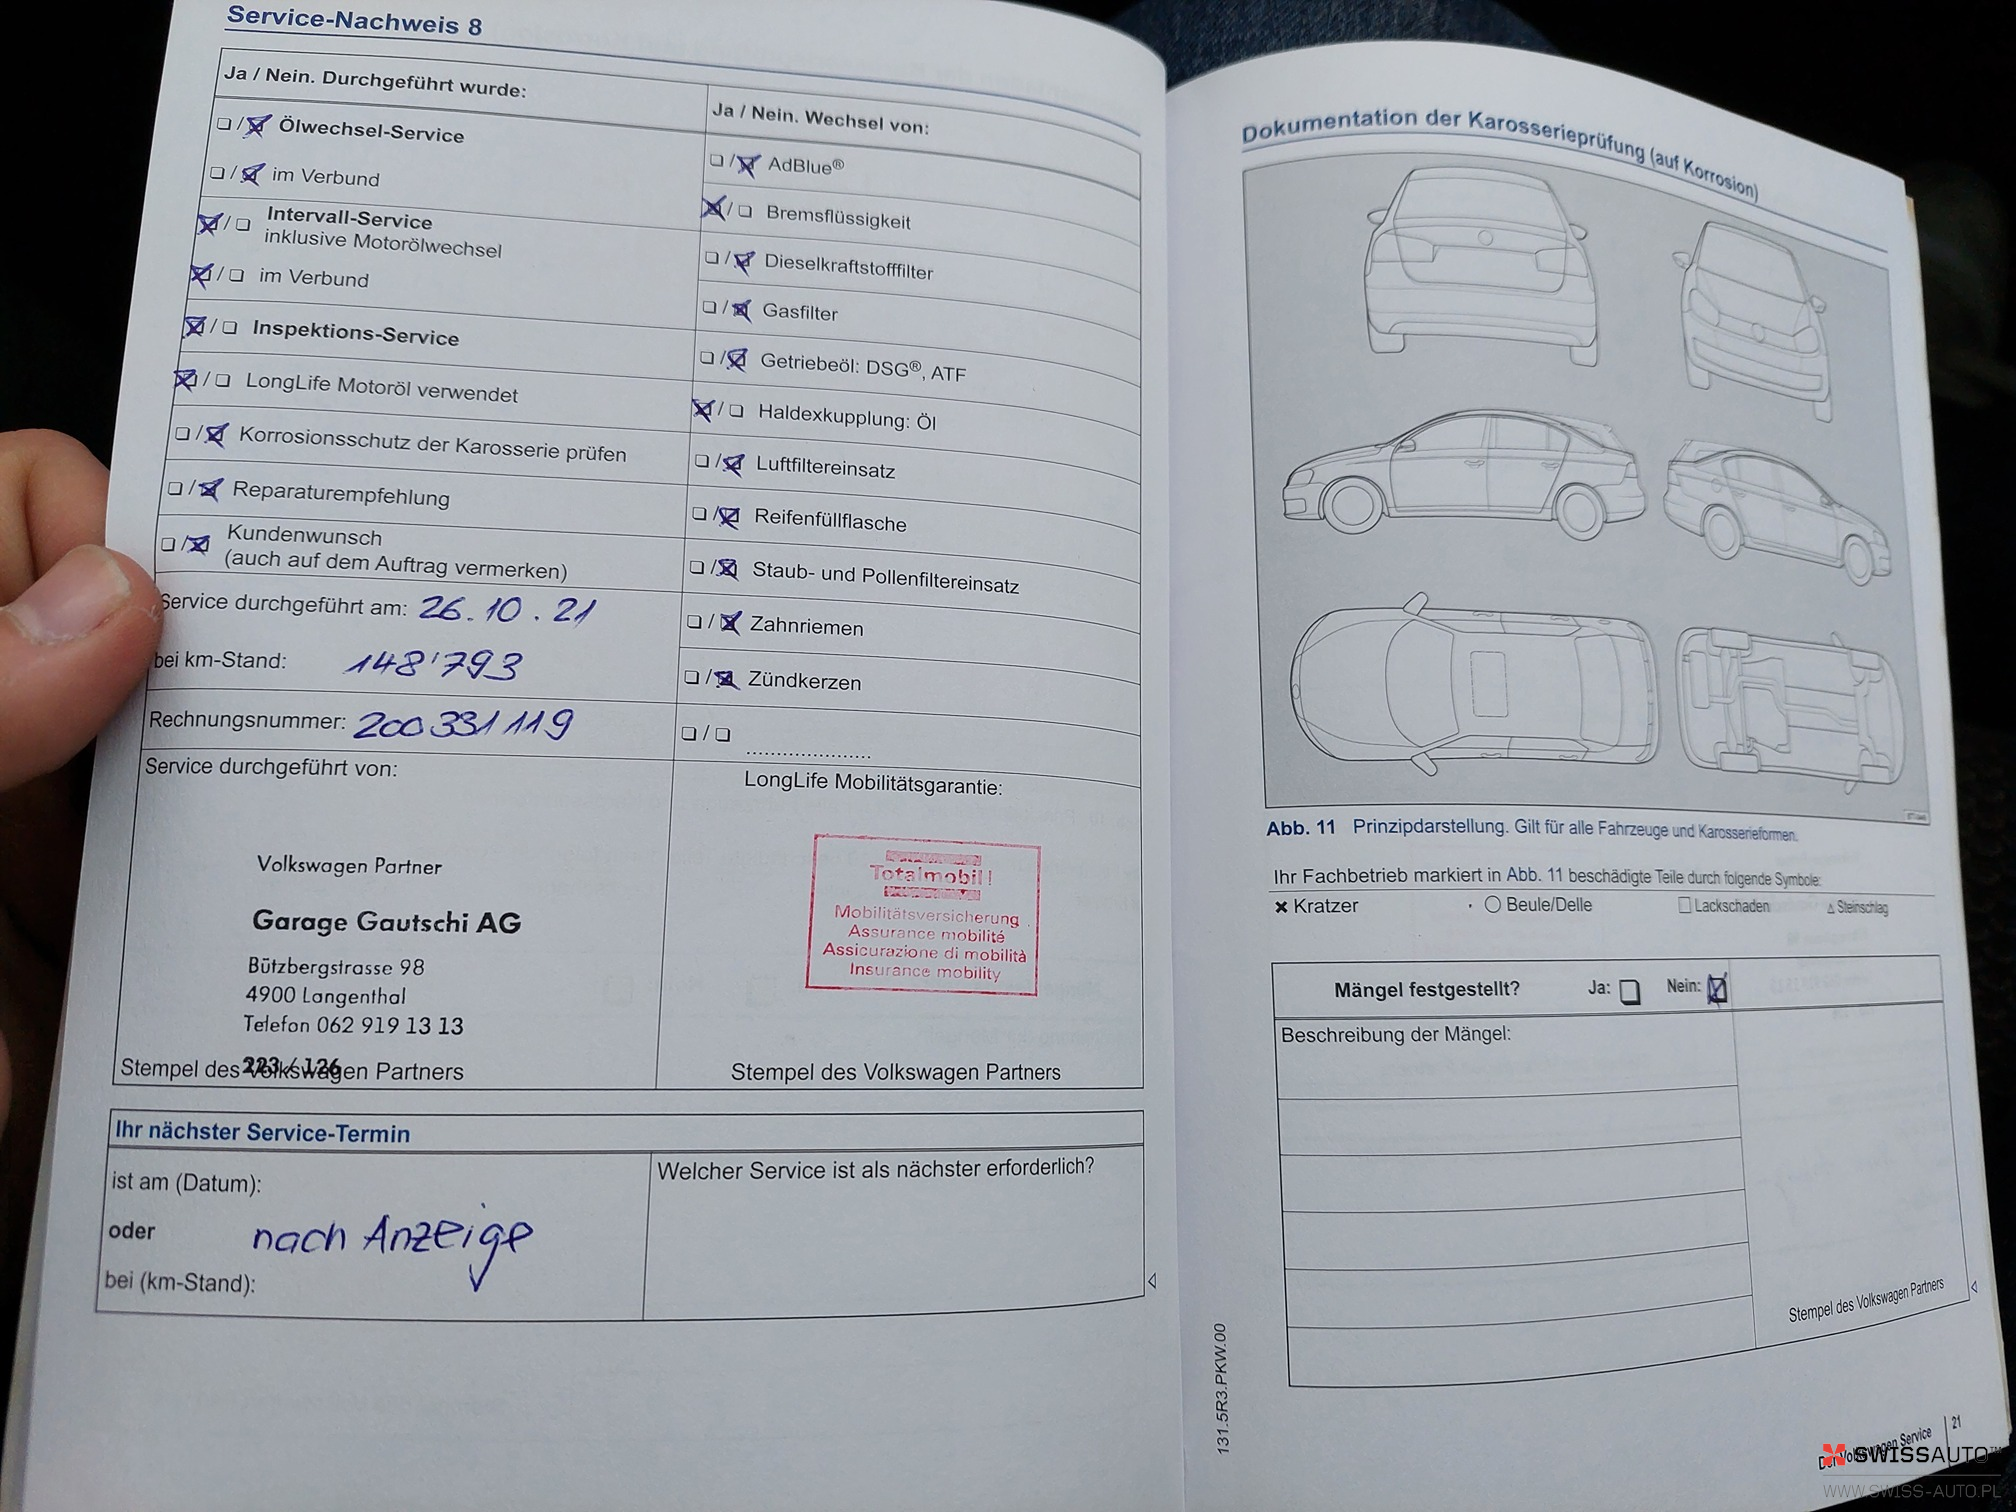 Service-Nachweis 8
Ja / Nein. Durchgeführt wurde:
❏ / ☒ Ölwechsel-Service
❏ / ☒ im Verbund
☒ / ❏ Intervall-Service
inklusive Motorölwechsel
☒ / ❏ im Verbund
☒ / ❏ Inspektions-Service
☒ / ❏ LongLife Motoröl verwendet
❏ / ☒ Korrosionsschutz der Karosserie prüfen
❏ / ☒ Reparaturempfehlung
❏ / ☒ Kundenwunsch
(auch auf dem Auftrag vermerken)
Service durchgeführt am: 26.10.21
bei km-Stand: 148'793
Rechnungsnummer: 200331119
Ja / Nein. Wechsel von:
❏ / ☒ AdBlue®
☒ / ❏ Bremsflüssigkeit
❏ / ☒ Dieselkraftstofffilter
❏ / ☒ Gasfilter
❏ / ☒ Getriebeöl: DSG®, ATF
☒ / ❏ Haldexkupplung: Öl
❏ / ☒ Luftfiltereinsatz
❏ / ☒ Reifenfüllflasche
❏ / ☒ Staub- und Pollenfiltereinsatz
❏ / ☒ Zahnriemen
❏ / ☒ Zündkerzen
❏ / ❏ ....................
Service durchgeführt von:
Volkswagen Partner
Garage Gautschi AG
Bützbergstrasse 98
4900 Langenthal
Telefon 062 919 13 13
223 / 126
Stempel des Volkswagen Partners
LongLife Mobilitätsgarantie:
Totalmobil!
Mobilitätsversicherung
Assurance mobilité
Assicurazione di mobilità
Insurance mobility
Stempel des Volkswagen Partners
Ihr nächster Service-Termin
ist am (Datum):
oder nach Anzeige
bei (km-Stand):
Welcher Service ist als nächster erforderlich?
Dokumentation der Karosserieprüfung (auf Korrosion)
Abb. 11 Prinzipdarstellung. Gilt für alle Fahrzeuge und Karosserieformen.
Ihr Fachbetrieb markiert in Abb. 11 beschädigte Teile durch folgende Symbole:
✖ Kratzer ○ Beule/Delle □ Lackschaden △ Steinschlag
Mängel festgestellt? Ja: ❏ Nein: ☒
Beschreibung der Mängel:
Stempel des Volkswagen Partners
131.5R3.PKW.00
Der Volkswagen Service | 21
SWISSAUTO™
WWW.SWISS-AUTO.PL